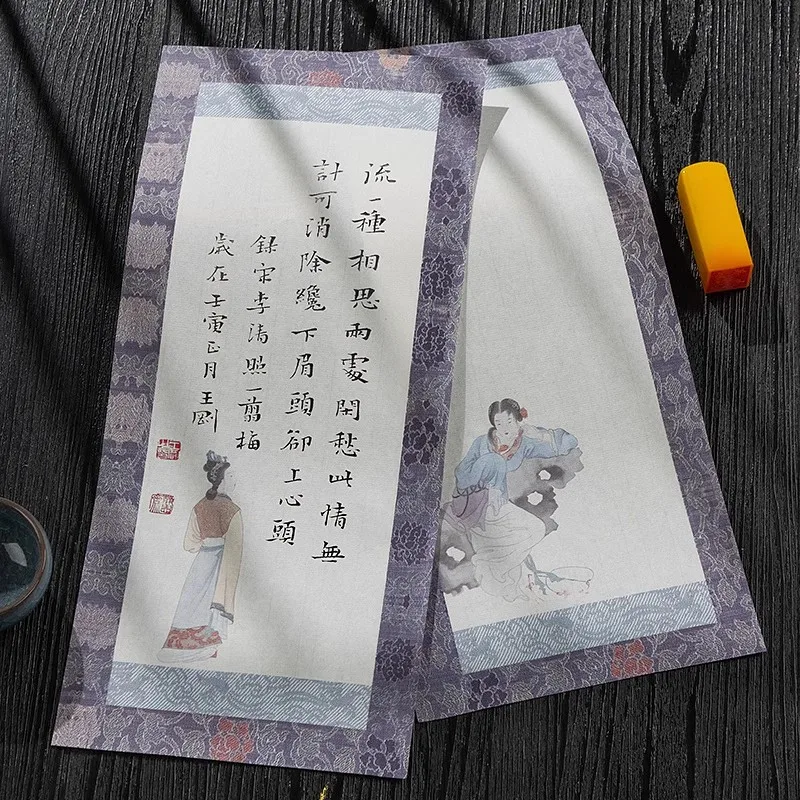 流一種相思兩處閑愁此情無
計可消除纔下眉頭卻上心頭
錄宋李清照一翦梅
歲在壬寅正月王剛